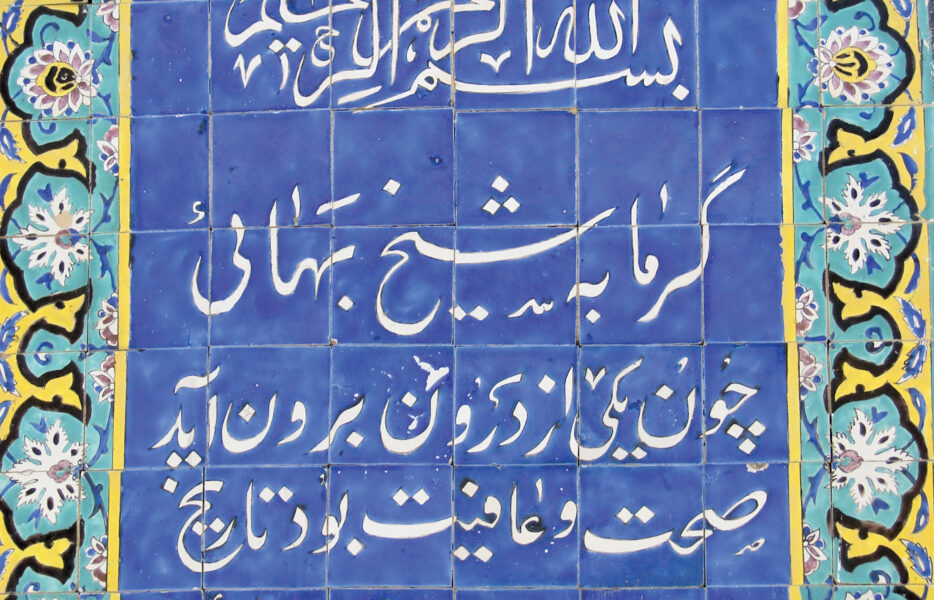 بسم الله الرحمن الرحیم
گرمابه شیخ بهائی
چون یکی از درون برون آید
صحت و عافیت بود تاریخ